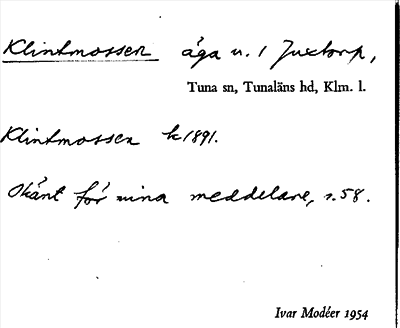 Klintmossen äga u. / Juxtorp,
Tuna sn, Tunaläns hd, Klm. l.
Klintmossen k 1891.
Okänt för mina meddelare, s. 58.
Ivar Modéer 1954